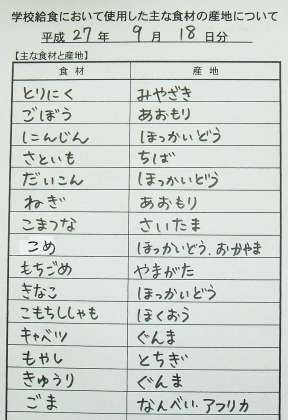 学校給食において使用した主な食材の産地について
平成 27 年 9 月 18 日分
【主な食材と産地】
食材 産地
とりにく みやざき
ごぼう あおもり
にんじん ほっかいどう
さといも ちば
だいこん ほっかいどう
ねぎ あおもり
こまつな さいたま
こめ ほっかいどう、おかやま
もちごめ やまがた
きなこ ほっかいどう
こもちししゃも ほくおう
キャベツ ぐんま
もやし とちぎ
きゅうり ぐんま
ごま なんべい、アフリカ